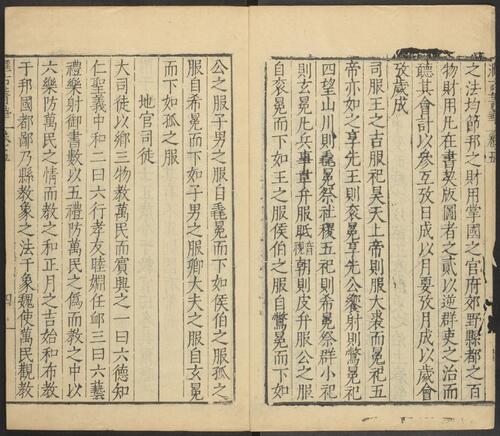 之法均節邦之財用掌國之官府郊野縣都之百
物財用凡在書契版圖者之貳以逆群吏之治而
聽其會計以叅互攷日成以月要攷月成以歲會
攷歲成
司服王之吉服祀昊天上帝則服大裘而冕祀五
帝亦如之享先王則袞冕享先公饗射則鷩冕祀
四望山川則毳冕祭社稷五祀則希冕祭群小祀
則玄冕凡兵事韋弁服眡朝則皮弁服公之服
自袞冕而下如王之服侯伯之服自鷩冕而下如
公之服子男之服自毳冕而下如侯伯之服孤之
服自希冕而下如子男之服卿大夫之服自玄冕
而下如孤之服
地官司徒
大司徒以鄉三物教萬民而賓興之一曰六德知
仁聖義中和二曰六行孝友睦婣任䘏三曰六藝
禮樂射御書數以五禮防萬民之偽而教之中以
六樂防萬民之情而教之和正月之吉始和布教
于邦國都鄙乃縣教象之法于象魏使萬民觀教
四